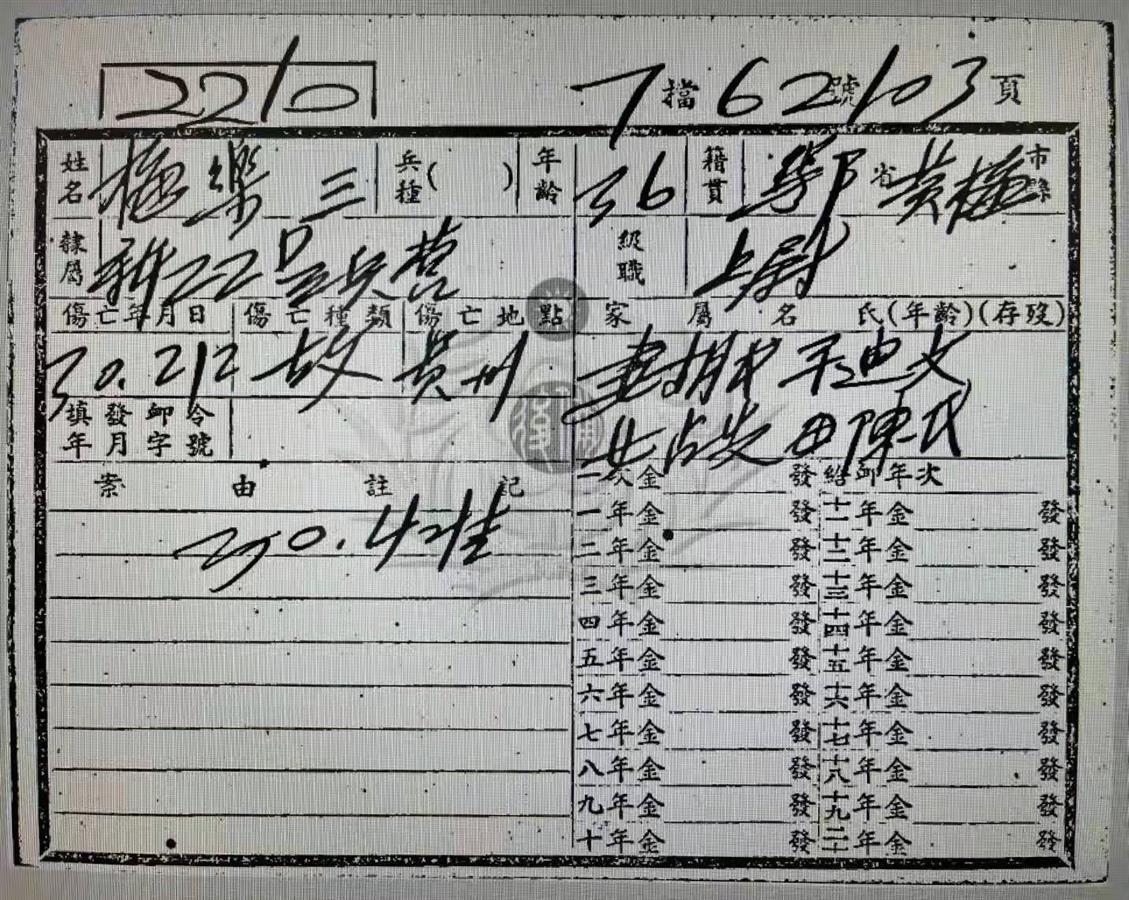 2210 7 擋 62 號 103 頁
姓名 梅樂三 兵種( ) 年齡 36 籍貫 鄂 省 黃梅 市縣
隸屬 新22 兵营 級職 上尉
傷亡年月日 傷亡種類 傷亡地點 家屬名氏(年齡)(存歿)
30.212 故 貴州 妻胡 子迪文
填發卹令年月字號 女占 母陳氏
案由註記 一次金 發 給卹年次
30.4 准 一年金 發 十一年金 發
二年金 發 十二年金 發
三年金 發 十三年金 發
四年金 發 十四年金 發
五年金 發 十五年金 發
六年金 發 十六年金 發
七年金 發 十七年金 發
八年金 發 十八年金 發
九年金 發 十九年金 發
十年金 發 二十年金 發